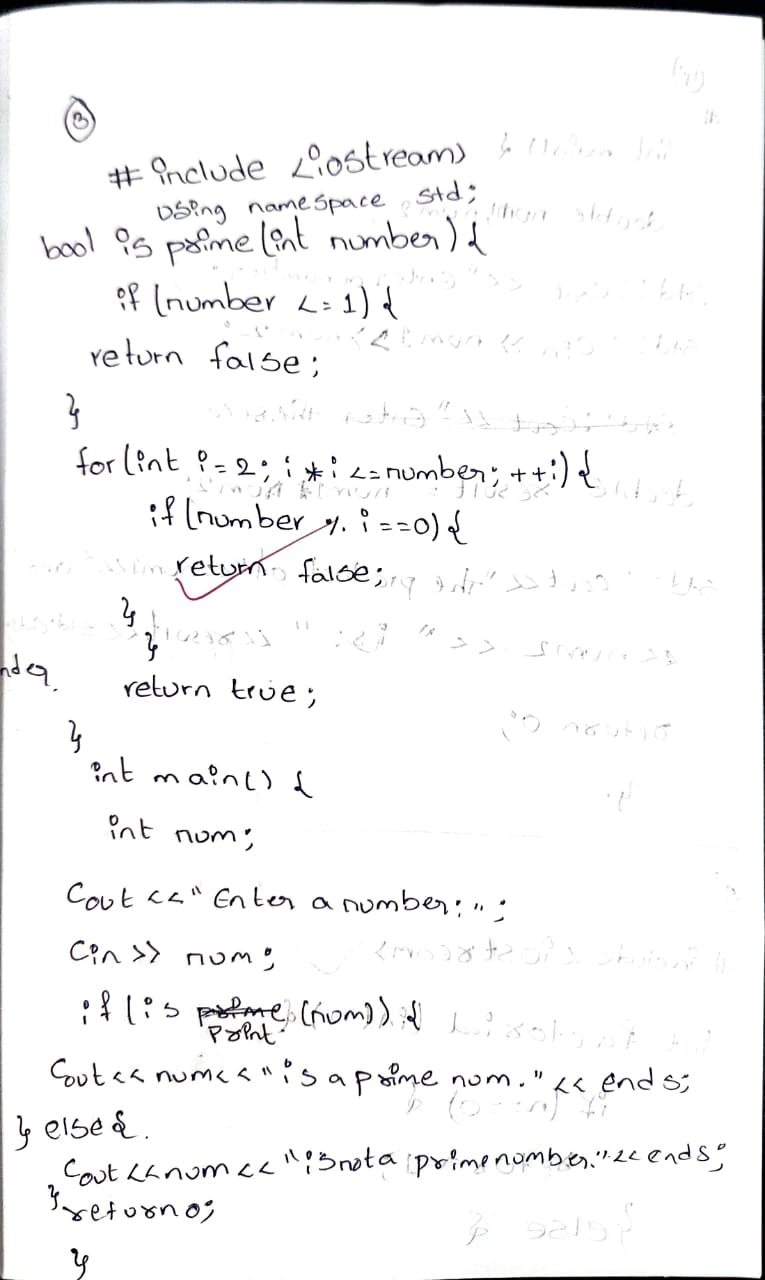 3
# include <iostream>
using namespace std;
bool is prime (int number) {
if (number <= 1) {
return false;
}
for (int i = 2; i * i <= number; ++i) {
if (number % i == 0) {
return false;
}
}
return true;
}
int main() {
int num;
Cout << "Enter a number: ";
Cin >> num;
if (is prime (num)) {
print
Cout << num << "is a prime num." << ends;
} else {
Cout << num << "is not a prime number." << ends;
}
return 0;
}